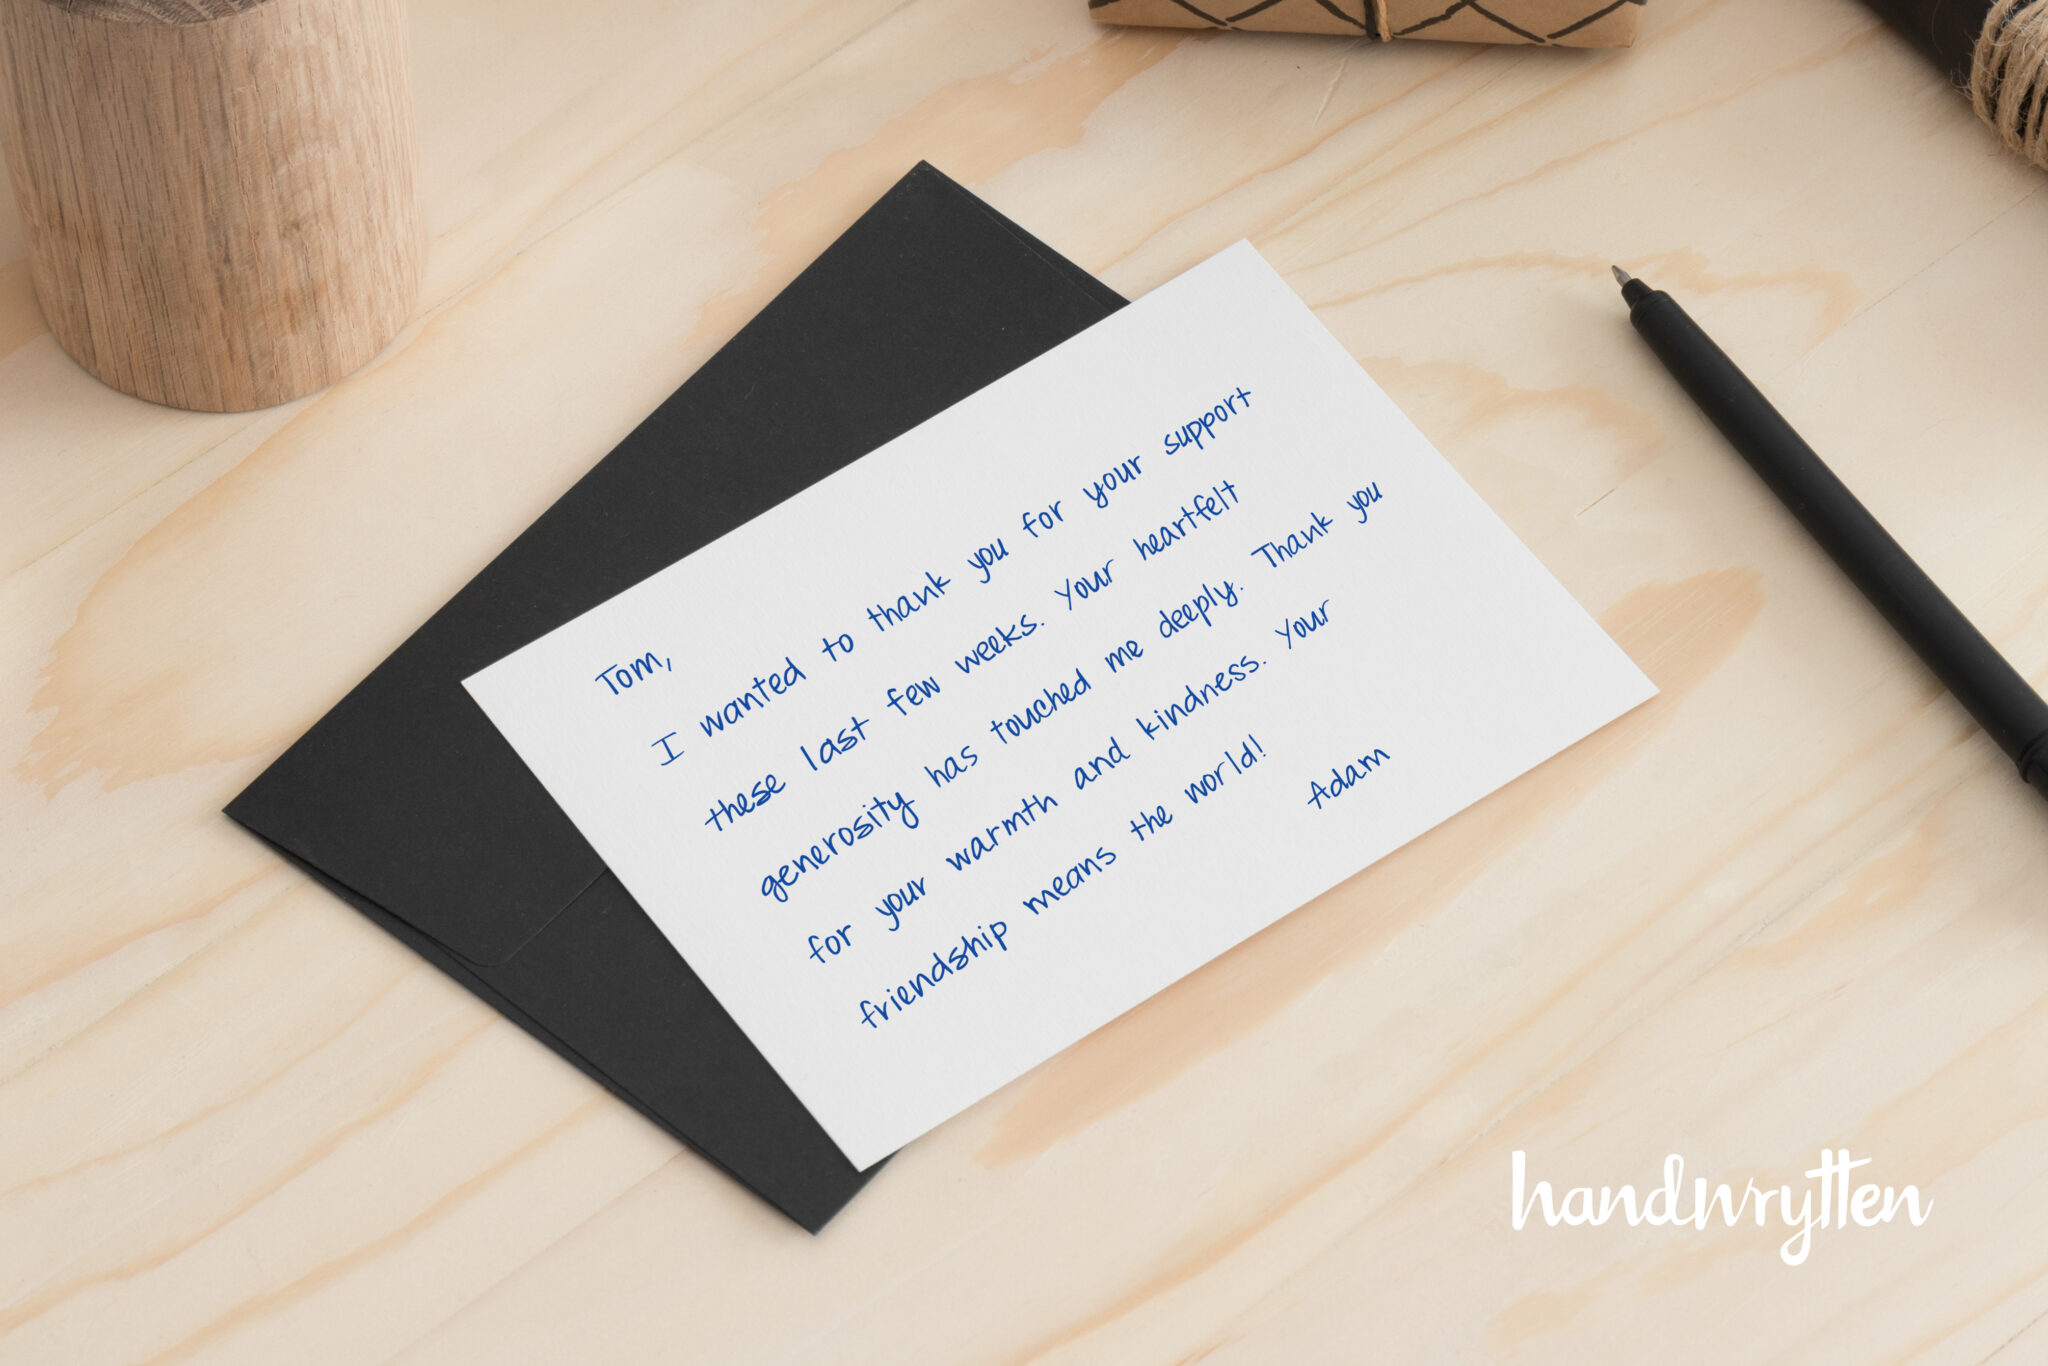 Tom,
I wanted to thank you for your support
these last few weeks. Your heartfelt
generosity has touched me deeply. Thank you
for your warmth and kindness. Your
friendship means the world!
Adam
handwrytten